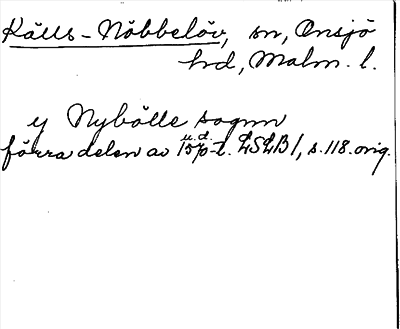 Källs-Nöbbelöv, sn, Onsjö
hd, Malm. l.
y Nybölle sognn
förra delen av 1500-t. LSLB 1, s. 118. orig.
u. d.